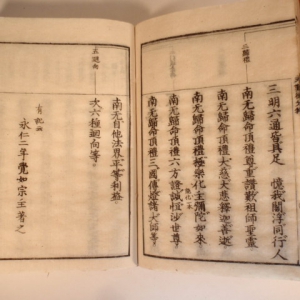 三明六通皆具足 憶我閻浮同行人
南无歸命頂禮尊重讃歎祖師聖靈
南无歸命頂禮大慈大悲釋迦善逝
南无歸命頂禮極樂化主彌陀如來
南无歸命頂禮六方證誠恒沙世尊
南无歸命頂禮三國傳燈諸大師等
南无自他法界平等利益
次六種廻向等
永仁二年覺如宗主著之